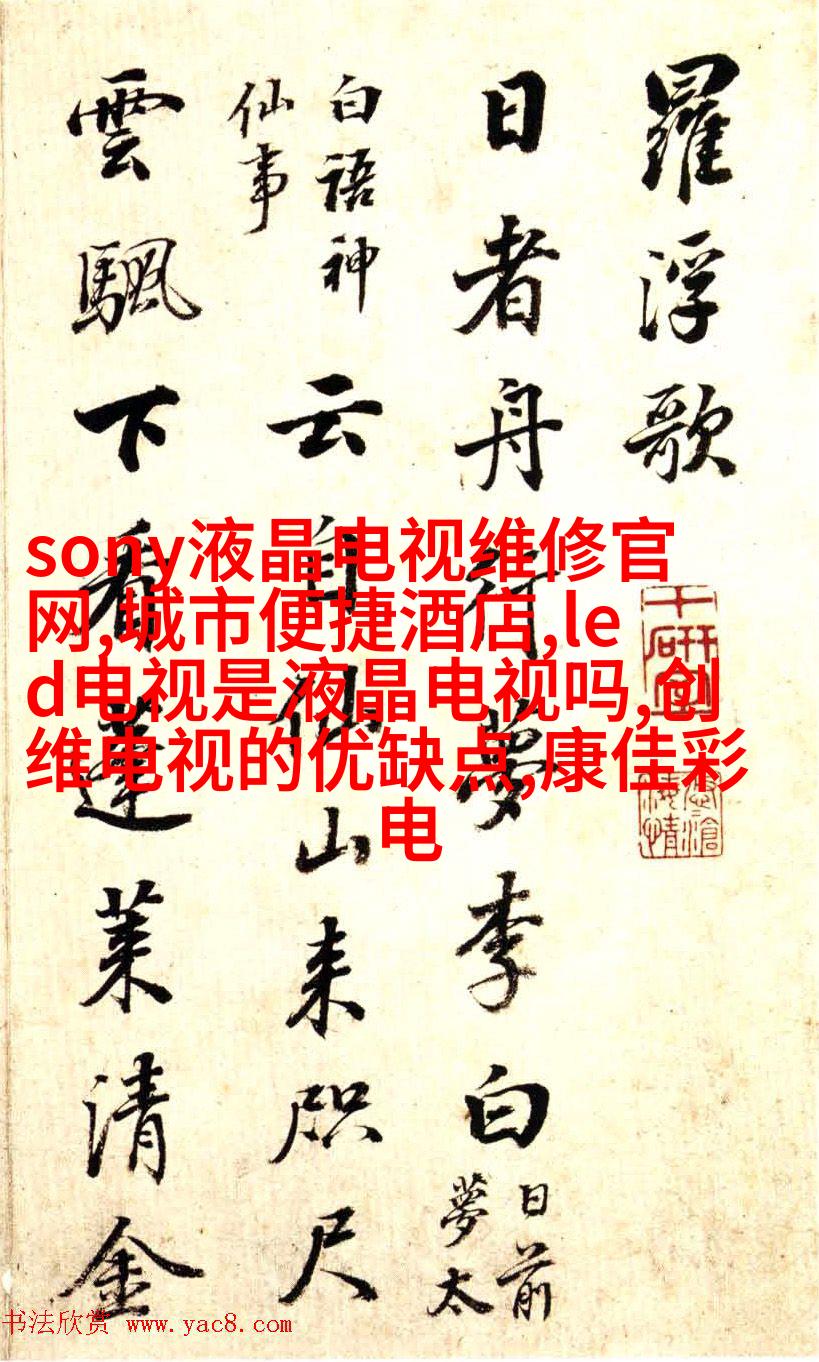 羅浮歌
日者舟行夢李白
日前
夢太
白語神
仙事
云自仙山来咫尺
雲颿下看蓬莱清
金
sony液晶电视维修官
网,城市便捷酒店,le
d电视是液晶电视吗,创
维电视的优缺点,康佳彩
电
书法欣赏 www.yac8.com